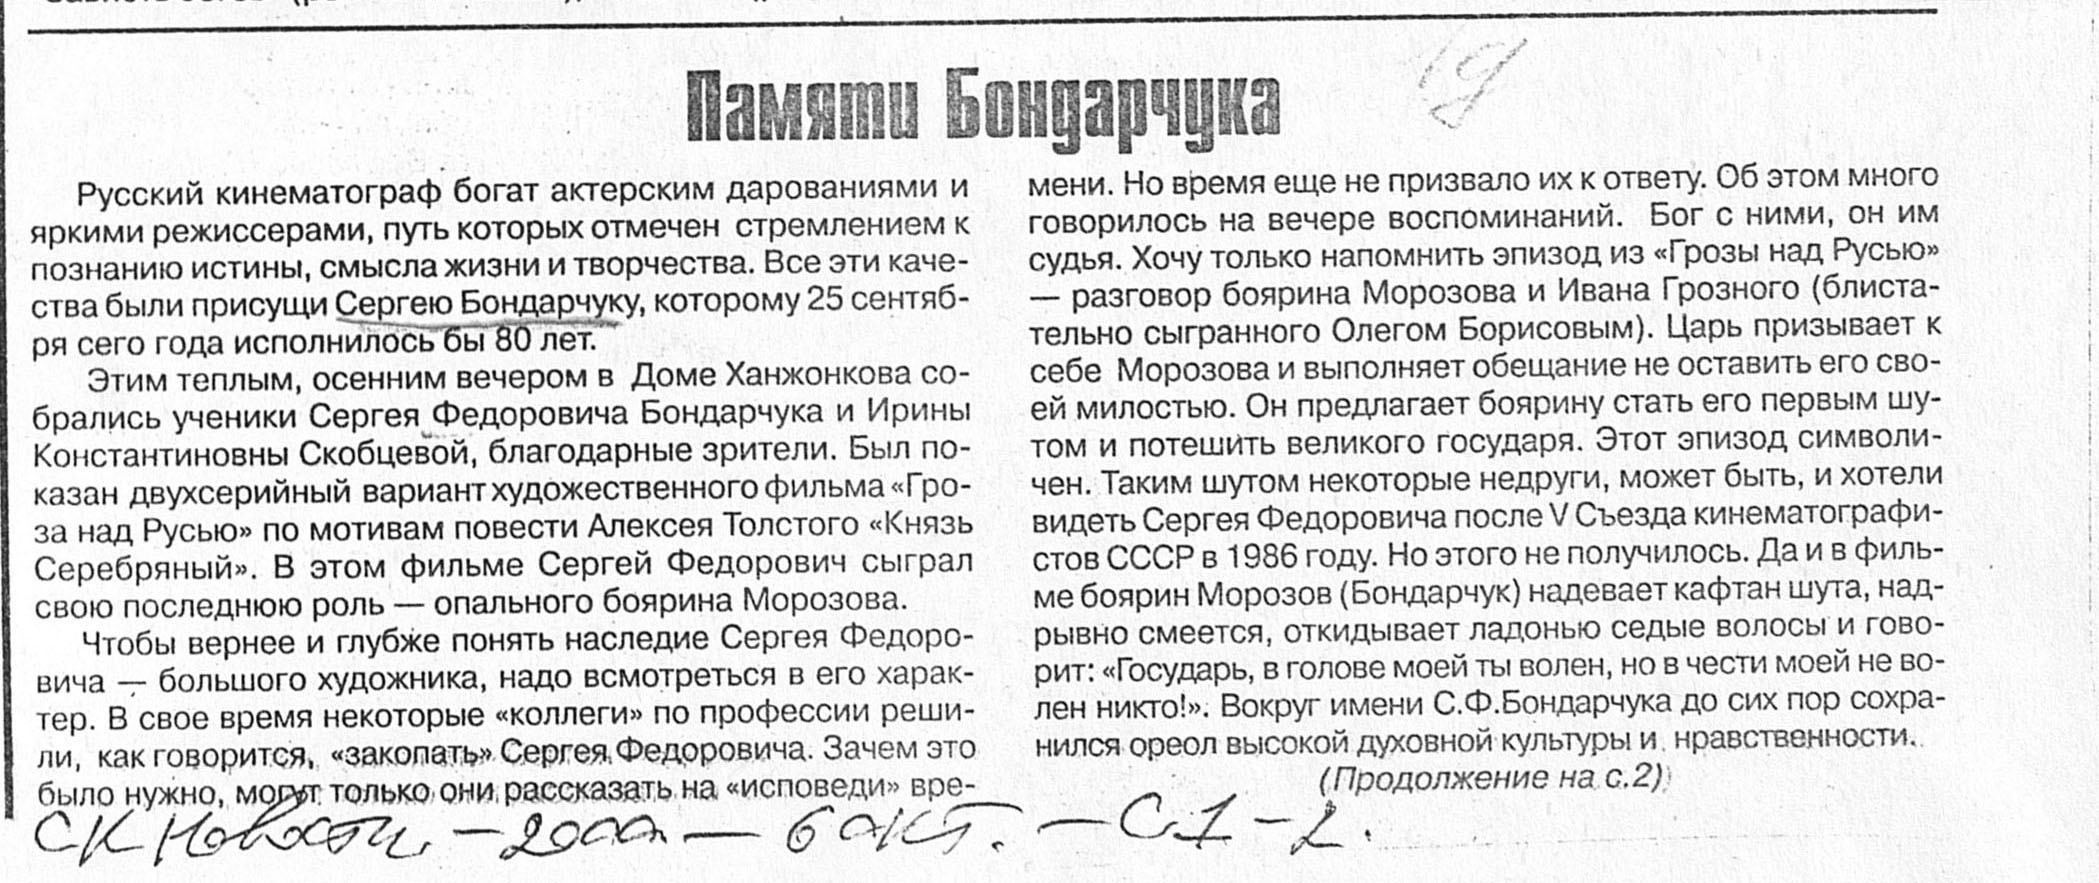 Памяти Бондарчука
Русский кинематограф богат актерским дарованиями и
яркими режиссерами, путь которых отмечен стремлением к
познанию истины, смысла жизни и творчества. Все эти каче-
ства были присущи Сергею Бондарчуку, которому 25 сентяб-
ря сего года исполнилось бы 80 лет.
Этим теплым, осенним вечером в Доме Ханжонкова со-
брались ученики Сергея Федоровича Бондарчука и Ирины
Константиновны Скобцевой, благодарные зрители. Был по-
казан двухсерийный вариант художественного фильма «Гро-
за над Русью» по мотивам повести Алексея Толстого «Князь
Серебряный». В этом фильме Сергей Федорович сыграл
свою последнюю роль — опального боярина Морозова.
Чтобы вернее и глубже понять наследие Сергея Федоро-
вича — большого художника, надо всмотреться в его харак-
тер. В свое время некоторые «коллеги» по профессии реши-
ли, как говорится, «закопать» Сергея Федоровича. Зачем это
было нужно, могут только они рассказать на «исповеди» вре-
мени. Но время еще не призвало их к ответу. Об этом много
говорилось на вечере воспоминаний. Бог с ними, он им
судья. Хочу только напомнить эпизод из «Грозы над Русью»
— разговор боярина Морозова и Ивана Грозного (блиста-
тельно сыгранного Олегом Борисовым). Царь призывает к
себе Морозова и выполняет обещание не оставить его сво-
ей милостью. Он предлагает боярину стать его первым шу-
том и потешить великого государя. Этот эпизод символи-
чен. Таким шутом некоторые недруги, может быть, и хотели
видеть Сергея Федоровича после V Съезда кинематографи-
стов СССР в 1986 году. Но этого не получилось. Да и в филь-
ме боярин Морозов (Бондарчук) надевает кафтан шута, над-
рывно смеется, откидывает ладонью седые волосы и гово-
рит: «Государь, в голове моей ты волен, но в чести моей не во-
лен никто!». Вокруг имени С.Ф.Бондарчука до сих пор сохра-
нился ореол высокой духовной культуры и нравственности.
(Продолжение на с.2)
СК Новости. – 2000. – 6 окт. – С.1-2.